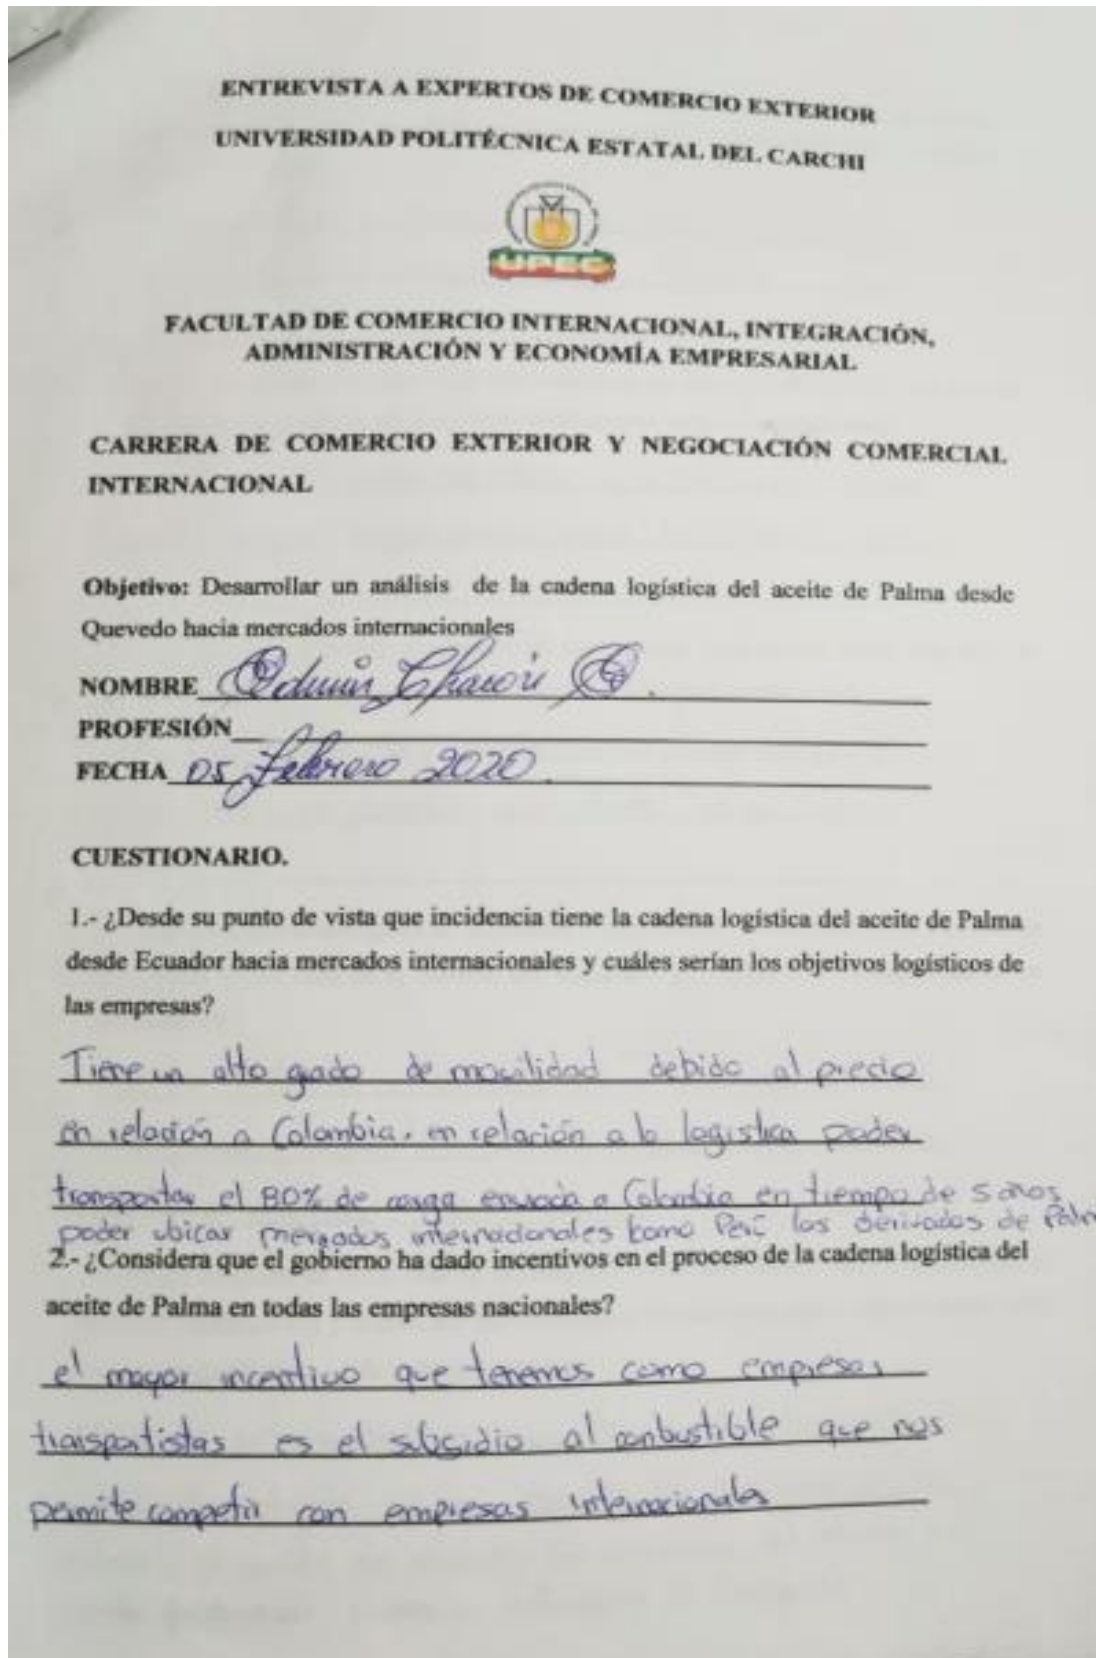 ENTREVISTA A EXPERTOS DE COMERCIO EXTERIOR
UNIVERSIDAD POLITÉCNICA ESTATAL DEL CARCHI
UPEC
FACULTAD DE COMERCIO INTERNACIONAL, INTEGRACIÓN,
ADMINISTRACIÓN Y ECONOMÍA EMPRESARIAL
CARRERA DE COMERCIO EXTERIOR Y NEGOCIACIÓN COMERCIAL
INTERNACIONAL
Objetivo: Desarrollar un análisis de la cadena logística del aceite de Palma desde
Quevedo hacia mercados internacionales
NOMBRE Edwin Chacón
PROFESIÓN
FECHA 05 Febrero 2020.
CUESTIONARIO.
1.- ¿Desde su punto de vista que incidencia tiene la cadena logística del aceite de Palma
desde Ecuador hacia mercados internacionales y cuáles serían los objetivos logísticos de
las empresas?
Tiene un alto grado de movilidad debido al precio
en relación a Colombia. en relación a la logistica poder
transportar el 80% de carga enviada a Colombia en tiempo de 5 años,
poder ubicar mercados internacionales como Perú los derivados de Palm
2.- ¿Considera que el gobierno ha dado incentivos en el proceso de la cadena logística del
aceite de Palma en todas las empresas nacionales?
el mayor incentivo que tenemos como empresas
transportistas es el subsidio al combustible que nos
permite competir con empresas internacionales